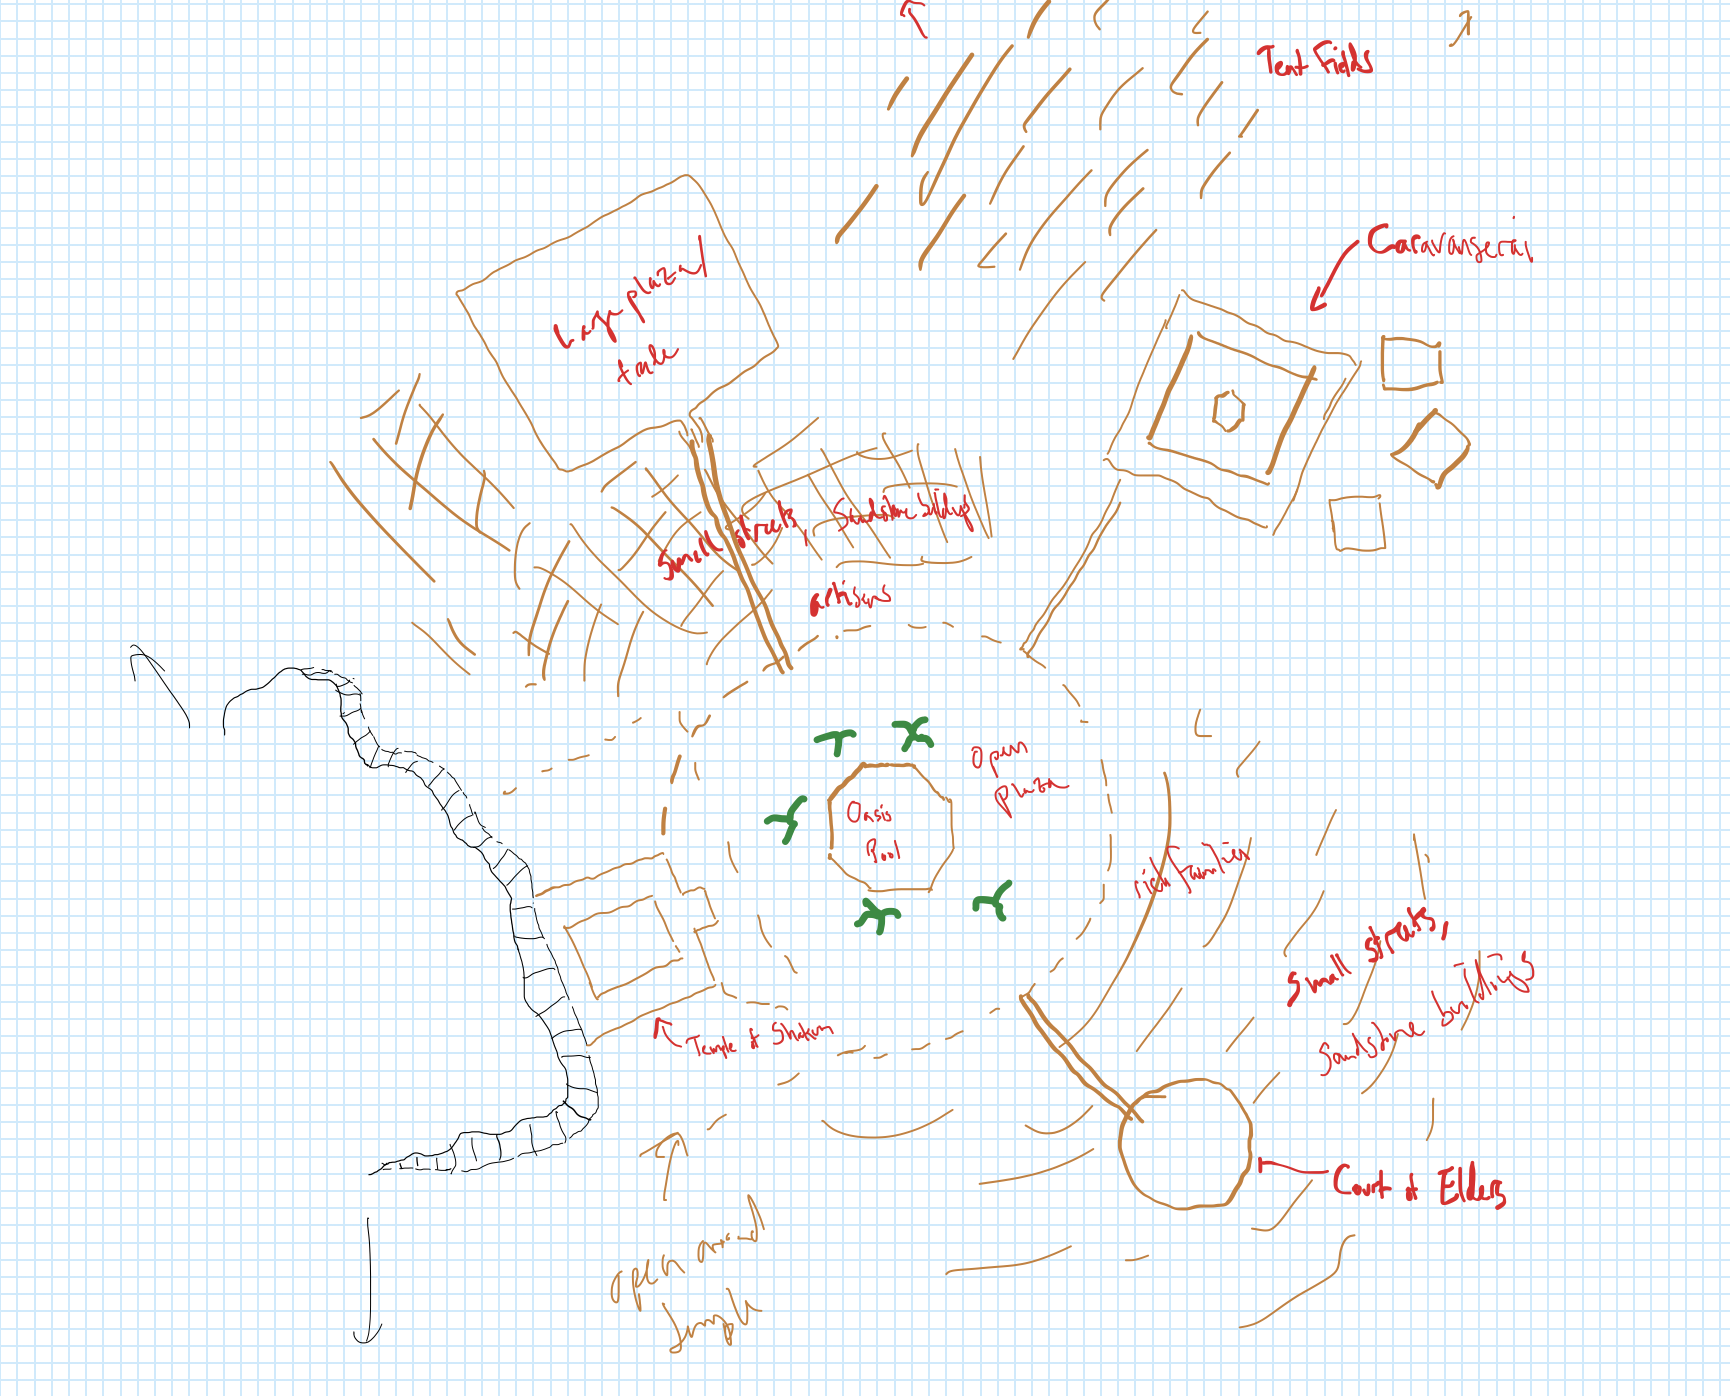 Tent Fields
Caravanserai
Large plaza
trade
Small streets, Sandstone bildings
artisans
Open
plaza
Oasis
Pool
rich families
Small streets,
Sandstone buildings
Temple of
Court of Elders
open around
temple